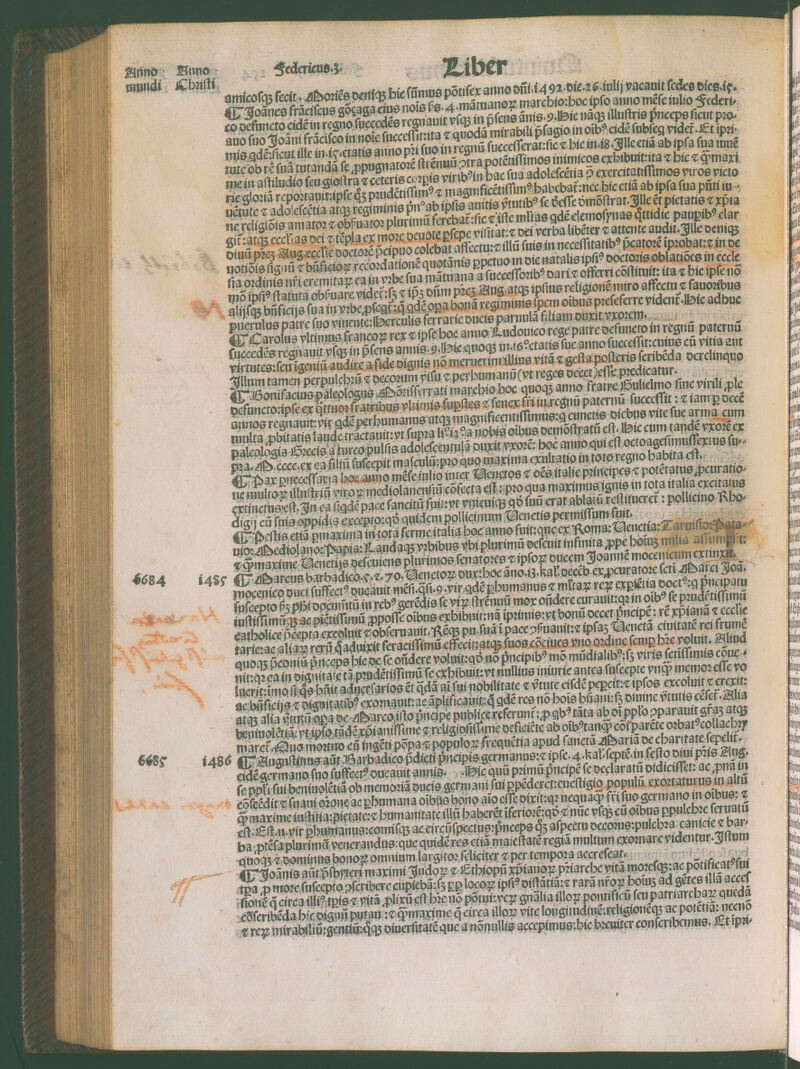 Anno Anno Federicus.3. Liber
mundi Christi
amicosqȝ fecit. Moriẽs deniqȝ hic sũmus põtifex anno dñi.1492.die.26.iulij vacauit sedes dies.15.
¶ Joãnes frãciscus gõçaga eius nois ṗs.4.mãtuanoꝝ marchio:hoc ipso anno mẽse iulio Federi-
co defuncto eidẽ in regno succedẽs regnauit vsqȝ in p̃sens ãnis.9.Hic nãqȝ illustris p̃nceps sicut pro-
auo suo Joãni frãcisco in noie successit:ita ⁊ quodã mirabili p̃sagio in oibꝰ eidẽ subseq̃ videt̃. Et ipri-
mis qdẽ:sicut ille in.15.etatis anno pr̃i suo in regnũ successerat:sic ⁊ hic in.18.Ille etiã ab ipsa sua iuuẽ
tute ob rẽ suã tutandã se ꝓpugnatorẽ strẽnuũ ꝯtra potẽtissimos inimicos exhibuit:ita ⁊ hic ⁊ q̃maxi
me in astiludio seu giostra ⁊ ceteris corpis viribꝰ in hac sua adolescẽtia ꝑ exercitatissimos viros victo
rie gloriã reportauit:ipse qȝ prudẽtissimꝰ ⁊ magnificẽtissimꝰ habebat̃:nec hic etiã ab ipsa sua pñti iu-
uẽtute ⁊ adolescẽtia atqȝ regiminis pñº ab ipsis anitis v̓tutibꝰ se d̃esse dmõstrat.Ille ẽt pietatis ⁊ xp̃ia
ne religiõis amator ⁊ obs̃uator plurimũ ferebat̃:sic ⁊ iste mltas qdẽ elemosynas q̃ttidie paupibꝰ elar
git̃:atqȝ ecclias dei ⁊ tẽpla ex more deuote p̃sepe visitat:⁊ dei verba libẽter ⁊ attente audit.Ille deniqȝ
diuũ p̃reȝ Aug.ecclie doctorẽ p̃cipuo colebat affectu:⁊ illũ suis in necessitatibꝰ p̃catorẽ iprobat:⁊ in de
uotiõis signũ ⁊ bñficioꝝ recordationẽ quotãnis ppetuo in die natalis ipsiꝰ doctoris oblatiões in eccle
sia ordinis nr̃i eremitaꝝ ea in vrbe sua mãtuana a successoribꝰ dari ⁊ offerri cõstituit: ita ⁊ hic ipse nõ
mõ ipsiꝰ statuta obs̃uare videt̃:sȝ ⁊ ipȝ diuũ p̃reȝ Aug.atqȝ ipsius religionẽ miro affectu ⁊ fauoribus
alijsqȝ bñficijs sua in vrbe psegt̃:q̃ qdẽ opa bonã regiminis spem oibus preseferre vident̃.Hic adhuc
puerulus patre suo viuente:Herculis ferrarie ducis paruulã filiam duxit vxorem.
¶ Carolus vltimus francoꝝ rex ⁊ ipse hoc anno Ludouico rege patre defuncto in regnũ paternũ
succedẽs regnauit vsqȝ in p̃sens annis.9.Hic quoqȝ in.16º etatis sue anno successit:cuius cũ vitia aut
virtutes:seu igeniũ audire a side dignis nõ meruerim illius vitã ⁊ gesta posteris scribẽda derelinquo
Illum tamen perpulchrũ ⁊ decorum visu ⁊ perhumanũ(vt reges decet)esse predicatur.
¶ Bonifacius paleologus Mõtisserrati marchio hoc quoqȝ anno fratre Gulielmo sine virili ꝓle
defuncto:ipse ex q̃ttuor fratribus vltimis supstes ⁊ senex fri in regnũ paternũ successit : ⁊ iam p decẽ
annos regnauit:vir qdẽ perhumanus atqȝ magnificentissimus:q cunctis diebus vite sue arma cum
multa ꝓbitatis laude tractauit:vt supra liº.12º.a nobis oibus demõstratũ est.Hic cum tandẽ vxorẽ ex
paleologis Grecis a turco pulsis adolescentulã duxit vxorẽ: hoc anno qui est octoagesimussextus su-
pra.M.cccc.ex ea filiũ suscepit masculũ:pro quo maxima exultatio in toto regno habita est.
¶ Pax pnecessaria hoc anno mẽse iulio inter Venetos ⁊ oẽs italie principes ⁊ potẽtatus ꝓcuratio-
ne multoꝝ illustriũ viroꝝ mediolanensiũ cõfecta est : pro qua maximus ignis in tota italia excitatus
extinctus est.In ea siqdẽ pace sancitũ fuit: vt vnicuiqȝ qð suũ erat ablatũ restitueret̃ : pollicino Rho-
digij cũ suis oppidis excepto:qð quidem pollicinum Venetis permissum fuit.
¶ Pestis etiã pmaxima in tota ferme italia hoc anno fuit:que ex Roma:Venetia:Taruisio:Pata-
uio:Mediolano:Papia:Laudaqȝ vrbibus vbi plurimũ deseuit infinita ꝓpe hoium milia assumpsit:
⁊ q̃maxime Venetijs deseuiens plurimos senatores ⁊ ipsoꝝ ducem Joannẽ mocenicum extinxit.
6684 1485 ¶ Marcus barbadico.5.⁊.70.Venetoꝝ dux:hoc ãno.13.kal.decẽb ex ꝓcuratore scti Marci Joã.
mocenico duci suffectꝰ ducauit mẽsi.qñi.9.vir qdẽ phumanus ⁊ mltaꝝ reꝝ expiẽtia doctꝰ:q p̃ncipatu
suscepto hȝ phi documẽtũ in rebꝰ gerẽdis se viꝝ strẽnuũ mox oñdere curauit:qr in oibꝰ se prudẽtissimũ
iustissimũqȝ ac piẽtissimũ ꝓposse oibus exhibuit:nã iprimis:vt bonũ decet p̃ncipẽ : rẽ xp̃ianã ⁊ ecclie
catholice p̃cepta excoluit ⁊ obseruauit.Rẽqȝ pu.suã i pace ꝯs̃uauit:⁊ ipsaȝ Venetã ciuitatẽ rei frumẽ
tarie:ac aliaꝝ rerũ q̃ aduixit feracissimũ effecit:atqȝ suos cõciues vno ordine semp hr̃e voluit. Aliud
quoqȝ p̃coniũ p̃nceps hic de se oñdere voluit:qð nõ p̃ncipibꝰ mõ mũdialibꝰ:sȝ viris sctissimis cõue-
nit:qr ea in dignitate tã prudẽtissimũ se exhibuit:vt nullius iniurie antea suscepte vnq̃ memor esse vo
luerit:imo si qs hũit aduersarios et̃ qdã ai sui nobilitate ⁊ v̓tute eisdẽ pepcit:⁊ ipsos excoluit ⁊ erexit:
ac bñficijs ⁊ dignitatibꝰ exornauit:ac ãplificauit:q̃ qdẽ res nõ hois hũani:sȝ diuine v̓tutis cẽset̃.Alia
atqȝ alia v̓tutũ opa de.Marco isto p̃ncipe publice referunt̃ ; ꝓ qbꝰ tãta ab oi pplo ꝯparauit gr̃aȝ atqȝ
beniuolẽtiã: vt ipso tãdẽ xp̃ianissime ⁊ religiosissime deficiẽte ab oibꝰ tanq̃ coi parẽte orbatꝰ collachry
maret̃. Quo mortuo cũ ingẽti põpa ⁊ populoꝝ frequẽtia apud sanctã Mariã de charitate sepelit̃.
6685 1486 ¶ Augustinus aũt Barbadico p̃dicti p̃ncipis germanus:⁊ ipse.4.kal.septẽ.in festo diui pr̃is Aug.
eidẽ germano suo suffectꝰ ducauit annis. .Hic quũ primũ p̃ncipẽ se declaratũ didicisset: ac ꝓnã in
se ppli sui beniuolẽtiã ob memoriã ducis germani sui ppẽderet:euestigio populũ exortaturus in altũ
cõscẽdit ⁊ suaui or̃one ac phumana oibus bono aio esse dixit:qr nequaqȝ fr̃i suo germano in oibus: ⁊
q̃ maxime iustitia:pietate:⁊ humanitate illũ haberẽt iferiorẽ:qð ⁊ nũc vsqȝ cũ oibus ppulchre seruatũ
est.Est.n.vir phumanus:comisqȝ ac circũspectus:p̃nceps qȝ aspectu decorus:pulchra canicie ⁊ bar-
ba ꝓtẽsa plurimũ venerandus:que quidẽ res etiã maiestatẽ regiã multum exornare videntur.Istum
quoqȝ ⁊ dominus bonoꝝ omnium largitor feliciter ⁊ per tempora accrescat.
¶ Joãnis aũt p̃sbyteri maximi Indoꝝ ⁊ Ethiopũ xp̃ianoꝝ priarche vitã moresqȝ:ac põtificatꝰ sui
tpa ꝓ more suscepto ꝯscribere cupiebã:sȝ ꝓp locoꝝ ipsiꝰ distãtiã:⁊ rarã nr̃oꝝ hoiuȝ ad gẽtes illã acces
sionẽ q̃ circa illiꝰ tpis ⁊ vitã ꝓlixũ est hr̃e nõ põtui:veꝝ gnãlia illoꝝ pontificũ seu patriarchaꝝ quedã
cõscribẽda hic dignũ putaui:⁊ q̃maxime q̃ circa illoꝝ vite longitudinẽ:religionẽqȝ ac potẽtiã: necnõ
⁊ reꝝ mirabiliũ:gentiũ:q̃qȝ diuersitatẽ que a nõnullis accepimus:hic breuiter conscribemus. Et ipri-